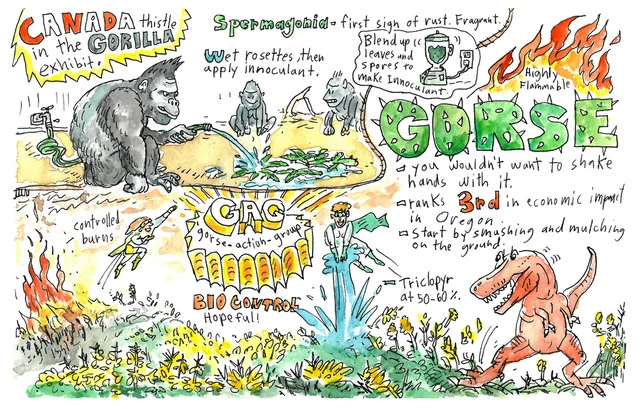 CANADA thistle
in the GORILLA
exhibit.
Spermagonia - first sign of rust. Fragrant.
Wet rosettes, then
apply innoculant.
Blend up
leaves and
spores to
make Innoculant.
Highly
Flammable
GORSE
- you wouldn't want to shake
hands with it.
- ranks 3rd in economic impact
in Oregon.
- start by smushing and mulching
on the ground.
controlled
burns
GAG
gorse-action-group
BIO CONTROL
Hopeful!
Triclopyr
at 50-60%.